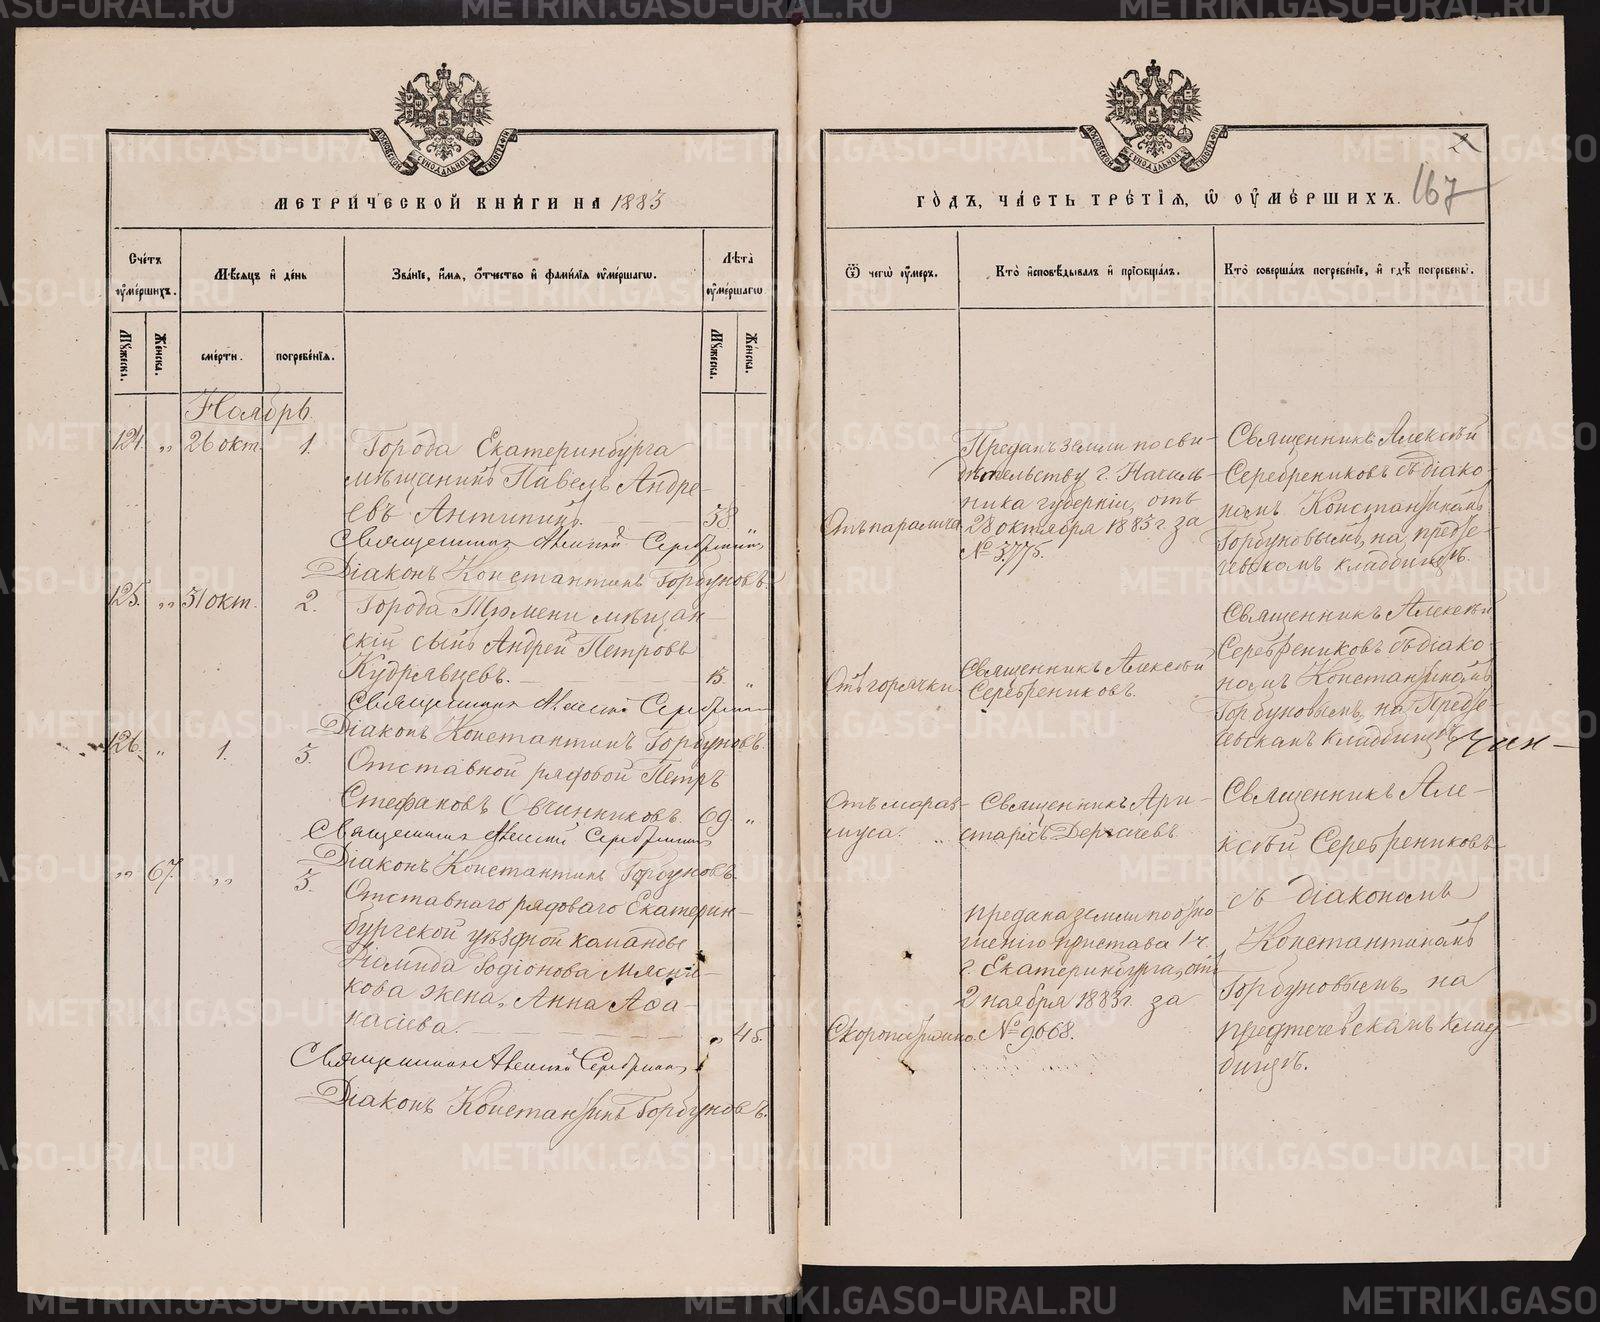 МЕТРИ́ЧЕСКОЙ КНИ́ГИ НА 1883
Сче́тъ ᲂумершихъ.
Мѣсяцъ и день
Зва́нїе, и́мя, о́тчество и фами́лїя ᲂуме́ршагѡ.
Лѣта̀ ᲂуме́ршагѡ
Мꙋжеска.
Же́нска.
сме́рти.
погребе́нїя.
Мꙋжеска.
Же́нска.
Ноябрь.
124. „ 26 окт. 1. Города Екатеринбурга
мѣщанинъ Павелъ Андре-
евъ Антипинъ. 58 „
Священникъ Алексѣй Серебренниковъ
Діаконъ Константинъ Горбуновъ.
125. „ 31 окт. 2. Города Тюмени мѣщан-
скій сынъ Андрей Петровъ
Кудрявцевъ. 15. „
Священникъ Алексѣй Серебренниковъ
Діаконъ Константинъ Горбуновъ.
126. „ 1. 3. Отставной рядовой Петръ
Стефановъ Овчинниковъ. 69. „
Священникъ Алексѣй Серебренниковъ
Діаконъ Константинъ Горбуновъ.
„ 67. „ 3. Отставнаго рядоваго Екатерин-
бургской уѣздной команды
Родіонова Мясни-
кова жена, Анна Аѳа-
насіева. „ 45.
Священникъ Алексѣй Серебренниковъ
Діаконъ Константинъ Горбуновъ.
ГО́ДЪ, ЧА́СТЬ ТРЕ́ТІЯ, Ѡ ОУМЕ́РШИХЪ. 167
Ѿ чегѡ̀ ᲂу́меръ.
Кто̀ и҆сповѣ́дывалъ и҆ прїѡбща́лъ.
Кто̀ соверша́лъ погребе́нїе, и҆ гдѣ̀ погребены̀.
Отъ паралича
Преданъ земли по сви-
дѣтельству г. Началь-
ника губерніи, отъ
28 октября 1883 г. за
№ 3775.
Священникъ Алексѣй
Серебрениковъ съ діако-
номъ Константиномъ
Горбуновымъ, на предте-
чевскомъ кладбищѣ.
Отъ горячки.
Священникъ Алексѣй
Серебрениковъ.
Священникъ Алексѣй
Серебрениковъ съ діако-
номъ Константиномъ
Горбуновымъ, на Предте-
чевскомъ кладбищѣ.
Отъ мараз-
муса.
Священникъ Ари-
стархъ Дергачевъ.
Священникъ Але-
ксѣй Серебрениковъ
съ діакономъ
Константиномъ
Горбуновымъ, на
предтечевскомъ клад-
бищѣ.
Скоропостижно.
Предана земли по отно-
шенію пристава 1 ч.
г. Екатеринбурга, отъ
2 ноября 1883 г. за
№ 9668.
ДУХОВНОЙ СУНОДАЛЬНОЙ ТИПОГРАФІИ
METRIKI.GASO-URAL.RU